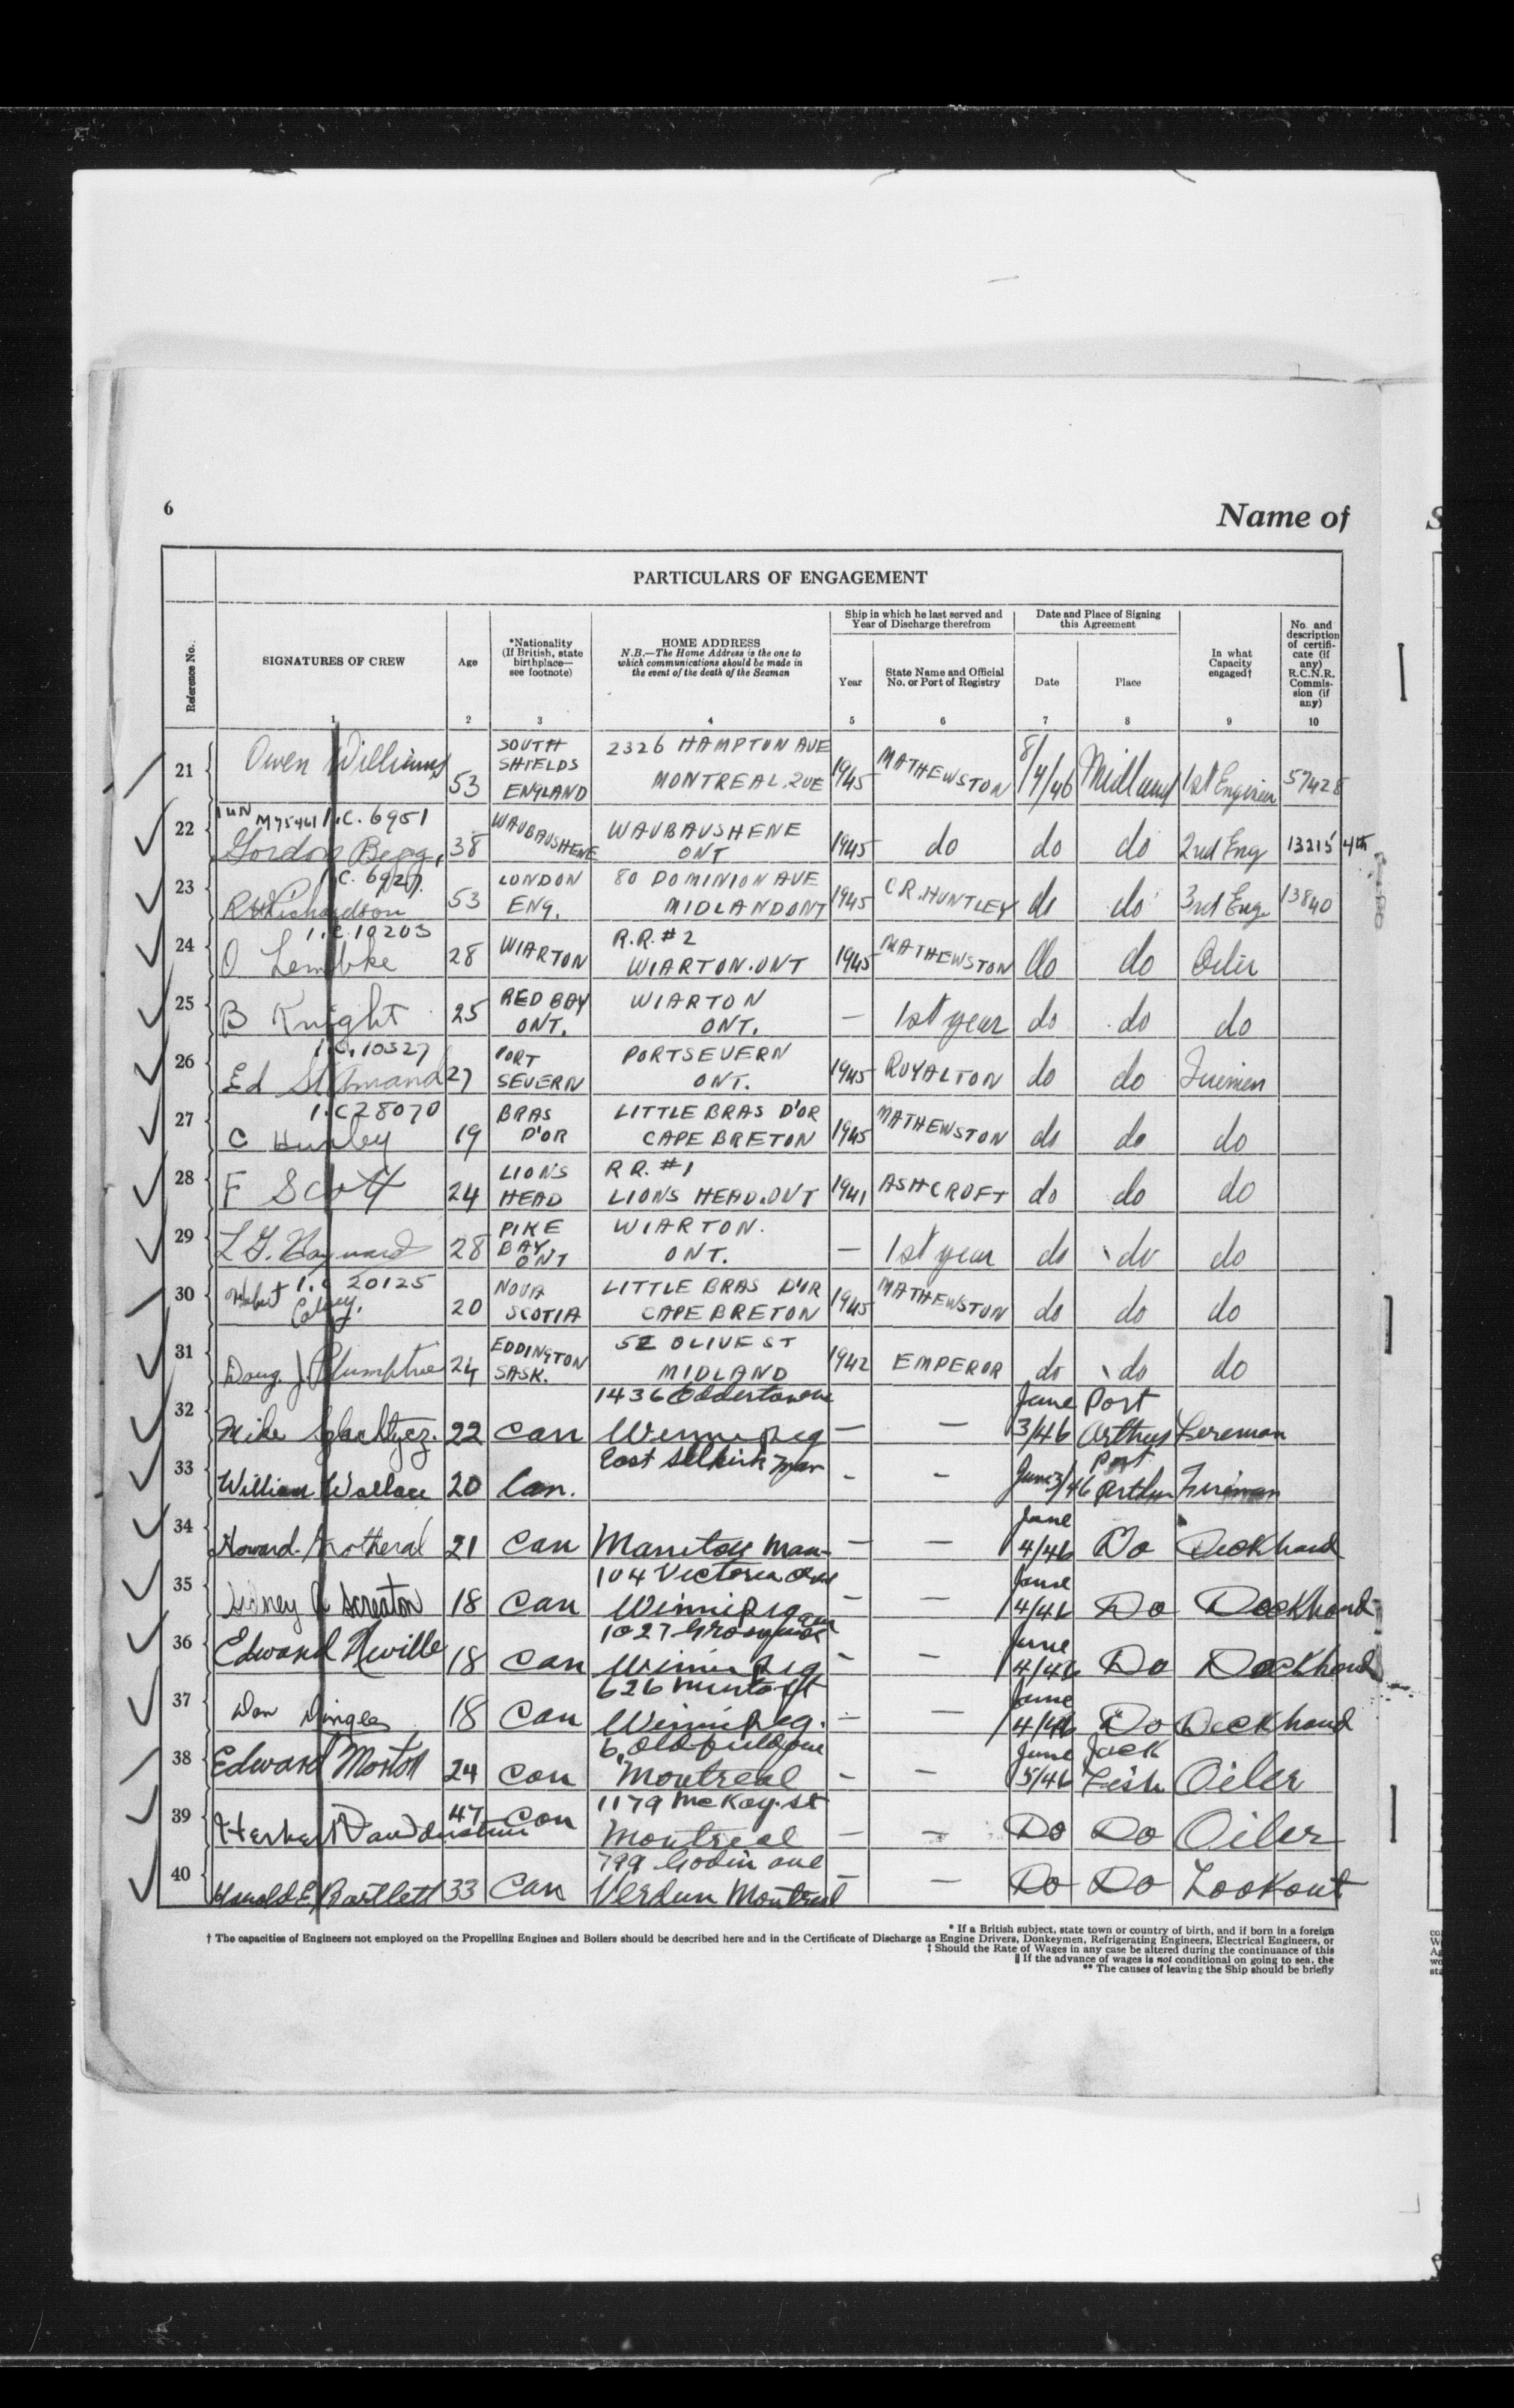 6
Name of
PARTICULARS OF ENGAGEMENT
Reference No.
SIGNATURES OF CREW
Age
*Nationality
(If British, state
birthplace—
see footnote)
HOME ADDRESS
N.B.—The Home Address is the one to
which communications should be made in
the event of the death of the Seaman
Ship in which he last served and
Year of Discharge therefrom
Year
State Name and Official
No. or Port of Registry
Date and Place of Signing
this Agreement
Date
Place
In what
Capacity
engaged†
No. and
description
of certifi-
cate (if
any)
R.C.N.R.
Commis-
sion (if
any)
1 2 3 4 5 6 7 8 9 10
21 Owen Williams 53 SOUTH SHIELDS ENGLAND 2326 HAMPTON AVE MONTREAL. QUE 1945 MATHEWSTON 8/4/46 Midland 1st Engineer 57428
M75461 I.C. 6951
22 Gordon Begg, 38 WAUBAUSHENE WAUBAUSHENE ONT 1945 do do do 2nd Eng 13215 4th
I.C. 6927
23 R Richardson 53 LONDON ENG. 80 DOMINION AVE MIDLAND ONT 1945 C.R. HUNTLEY do do 3rd Eng. 13840
I.C. 10203
24 O Lembke 28 WIARTON R.R. #2 WIARTON. ONT 1945 MATHEWSTON do do Oiler
25 B Knight 25 RED BAY ONT. WIARTON ONT. — 1st year do do do
I.C. 10327
26 Ed St Amand 27 PORT SEVERN PORT SEVERN ONT. 1945 ROYALTON do do Firemen
I.C 28070
27 C Hurley 19 BRAS D'OR LITTLE BRAS D'OR CAPE BRETON 1945 MATHEWSTON do do do
28 F Scott 24 LIONS HEAD R R. #1 LIONS HEAD. ONT 1941 ASHCROFT do do do
29 L G. Hayward 28 PIKE BAY ONT WIARTON. ONT. — 1st year do do do
I.C 20125
30 20 NOVA SCOTIA LITTLE BRAS D'OR CAPE BRETON 1945 MATHEWSTON do do do
31 Doug. J. Plumptree 24 EDDINGTON SASK. 52 OLIVE ST MIDLAND 1942 EMPEROR do do do
32 Mike 22 Can 1436 Winnipeg — — June 3/46 Port Arthur Fireman
33 William Wallace 20 Can. East Selkirk Man - - June 3/46 Port Arthur Fireman
34 Howard 21 Can Manitou Man- — — June 4/46 Do Deckhand
35 Sidney Screaton 18 Can 104 Victoria Ave Winnipeg - — June 4/46 Do Deckhand
36 Edward Neville 18 Can 1027 Grosvenor ave Winnipeg - — June 4/46 Do Deckhand
37 Don Dingle 18 Can 626 Minto St Winnipeg. - — June 4/46 Do Deckhand
38 Edward Morton 24 Can 6, Oldfield ave Montreal - — June 5/46 Jack Fish Oiler
39 Herbert 47 Can 1179 McKay. St Montreal — — Do Do Oiler
40 Harold E. Bartlett 33 Can 799 Godin ave Verdun Montreal — — Do Do Lookout
* If a British subject, state town or country of birth, and if born in a foreign
† The capacities of Engineers not employed on the Propelling Engines and Boilers should be described here and in the Certificate of Discharge as Engine Drivers, Donkeymen, Refrigerating Engineers, Electrical Engineers, or
‡ Should the Rate of Wages in any case be altered during the continuance of this
‖ If the advance of wages is not conditional on going to sea, the
** The causes of leaving the Ship should be briefly